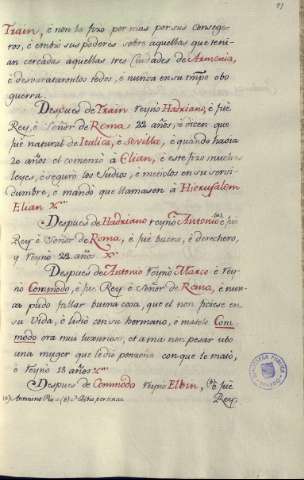 Train, è non lo fizo por mas por sus consege-
ros, è embiò sus poderes sobre aquellos que teni-
an cercadas aquellas tres Ciudades de Armenia,
è desvarataronlos todos, è nunca en su tmpo obo
guerra.
Despues de Train reynò Hadriano, è fuè
Rey, è Señor de Roma, 22 años, è dicen que
fuè natural de Italica, è Sevilla, è quando havia
20 años el comenzò à Elian, è este fizo muchas
leyes, è seguro los Judios, è metiolos en su servi-
dumbre, è mandò que llamasen à Hierusalem
Elian
Despues de Hadriano reynò Antonio è fuè
Rey è Señor de Roma, è fuè bueno, è derechero,
y reynò 22 años
Despues de Antonio reynò Marco è rey-
no Commodo, è fuè Rey è Señor de Roma, è nun-
ca pudo fallar buena cosa, que el non ficiese en
su vida, è lidiò con su hermano, è matòle Com
modo era mui luxurioso, et a ma non pesar ubo
una muger que le diò ponzoña con que le matò,
è reynò 13 años
Despues de Commodo reynò Elbin, è fuè
Rey